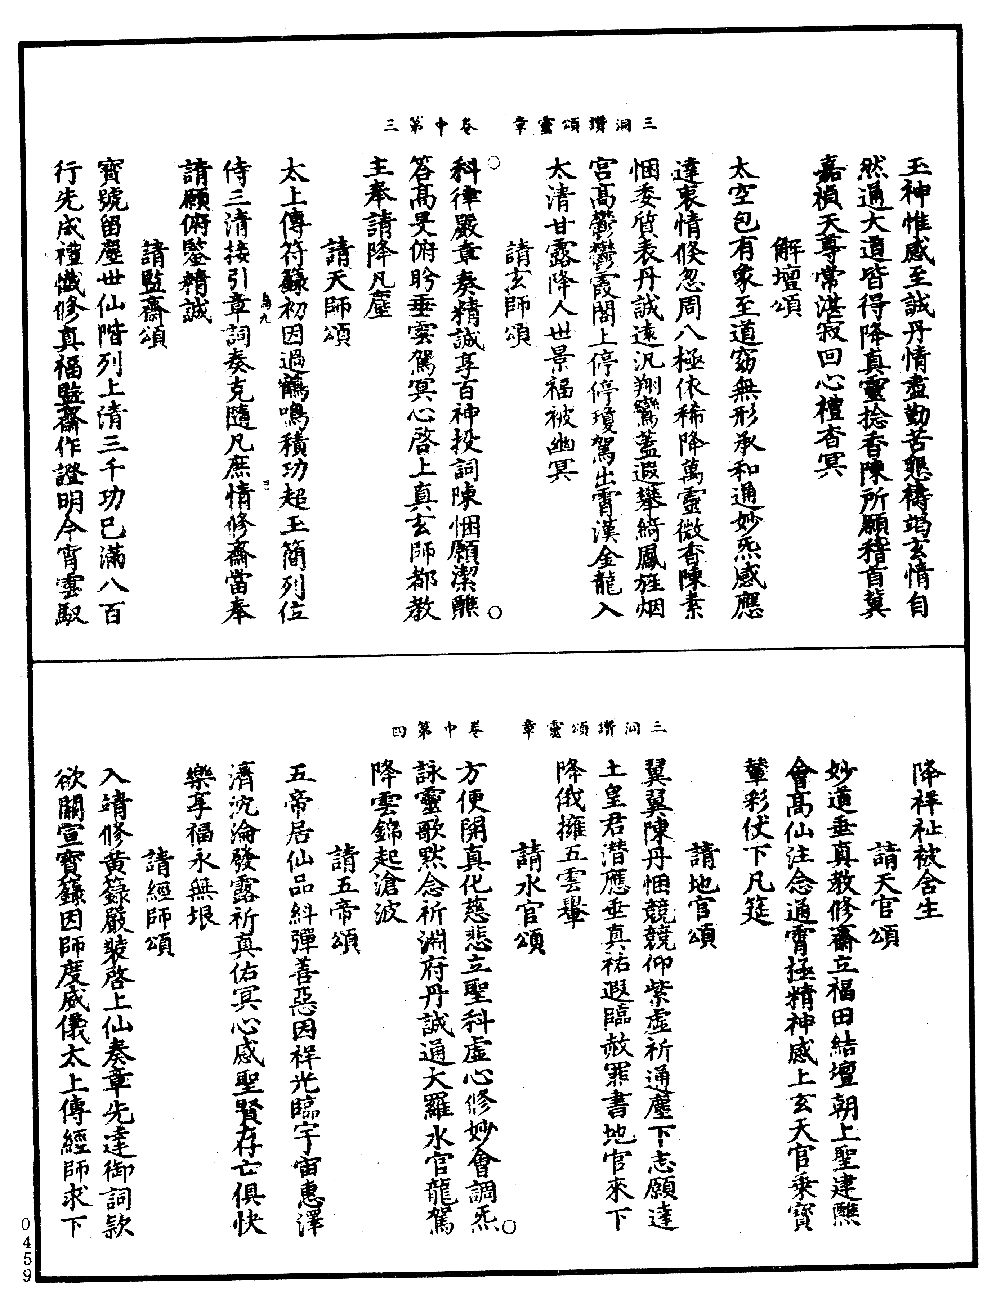 三洞讚頌靈章　卷中第三
玉神惟感至誠丹情盡勤苦懇禱竭玄情自
然通大道皆得降真靈捻香陳所願稽首冀
嘉禎天尊常湛寂回心禮杳冥
解壇頌
太空包有象至道窈無形承和通妙炁感應
達衷情倏忽周八極依稀降萬靈微香陳素
悃委質表丹誠遠汎翔鸞蓋遐舉綺鳳旌烟
宮高鬱鬱霞閣上停停瓊駕出霄漢金龍入
太清甘露降人世景福被幽冥
請玄師頌
科律嚴章奏精誠享百神投詞陳悃願潔醮
答高旻俯盻垂雲駕冥心啓上真玄師都教
主奉請降凡塵
請天師頌
太上傳符籙初因過鶴鳴積功起玉簡列位
侍三清接引章詞奏克隨凡庶情修齋當奉
請願俯鑒精誠
請監齋頌
寶號留塵世仙階列上清三千功已滿八百
行先成禮懺修真福監齋作證明今宵雲馭
三洞讚頌靈章　卷中第四
降祥祉被含生
請天官頌
妙道垂真教修齋立福田結壇朝上聖建醮
會高仙注念通霄極精神感上玄天官乗寶
輦彩仗下凡筵
請地官頌
翼翼陳丹悃兢兢仰紫虛祈通塵下志願達
土皇君潛應垂真祐遐臨赦罪書地官來下
降俄擁五雲轝
請水官頌
方便開真化慈悲立聖科虛心修妙會調炁
詠靈歌默念祈淵府丹誠通大羅水官龍駕
降雲錦起滄波
請五帝頌
五帝居仙品糾彈善惡因祥光臨宇宙惠澤
濟沉淪發露祈真佑冥心感聖賢存亡俱快
樂享福永無垠
請經師頌
入靖修黃籙嚴裝啓上仙奏章先達御詞款
欲關宣寶籙因師度威儀太上傳經師求下
0459